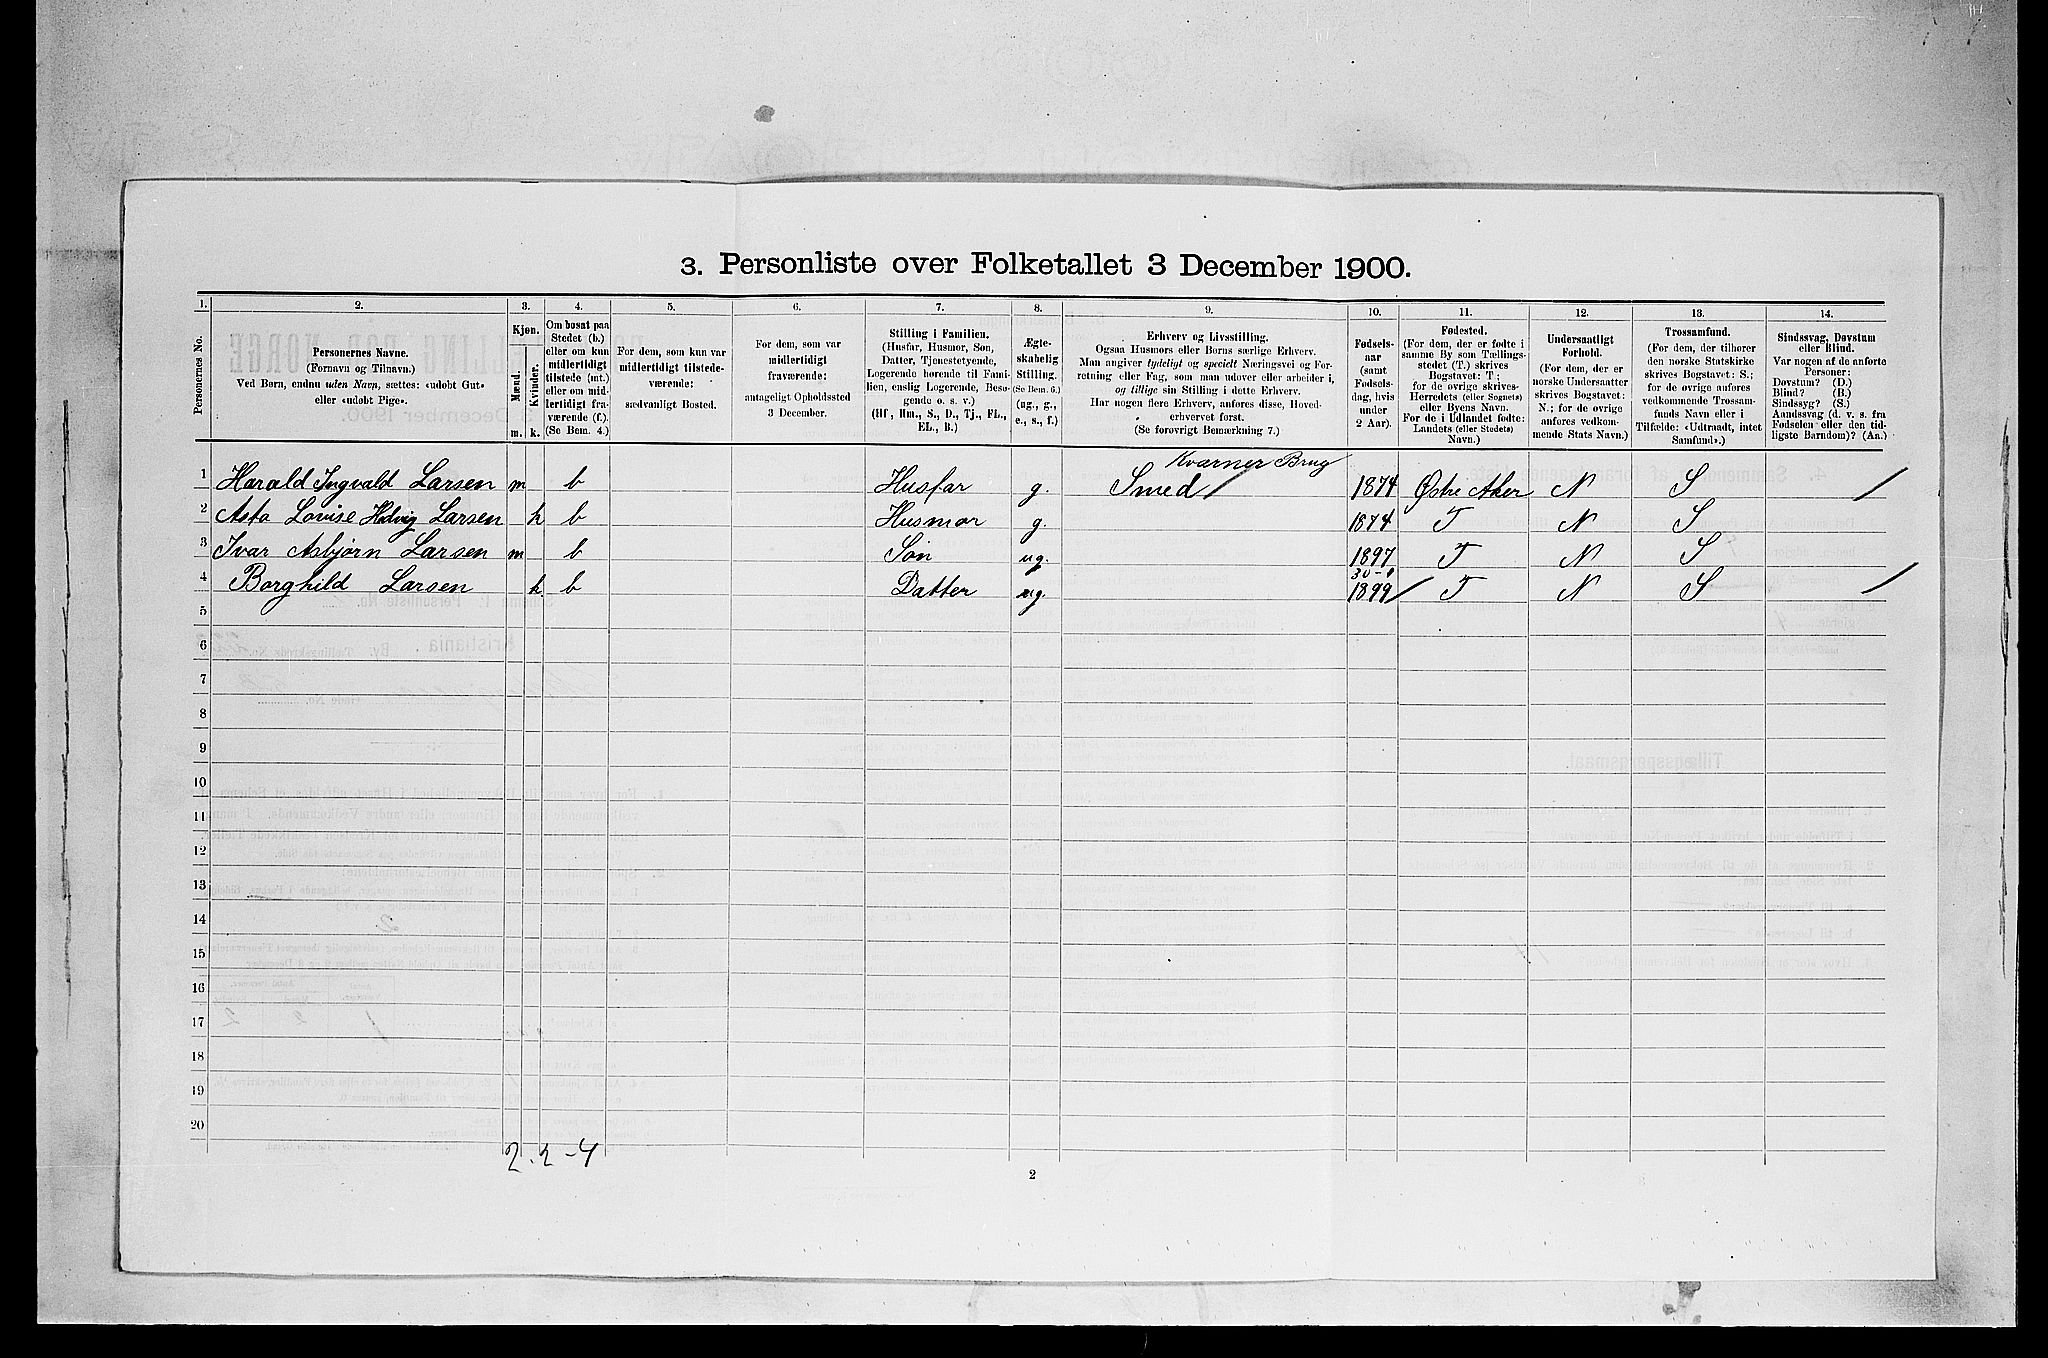 3. Personliste over Folketallet 3 December 1900.
1. 2. 3. 4. 5. 6. 7. 8. 9. 10. 11. 12. 13. 14.
Personernes No.
Personernes Navne.
(Fornavn og Tilnavn.)
Ved Børn, endnu uden Navn, sættes: «udøbt Gut»
eller «udøbt Pige».
Kjøn.
Mænd.
Kvinder.
m. k.
Om bosat paa
Stedet (b.)
eller om kun
midlertidigt
tilstede (mt.)
eller om mid-
lertidigt fra-
værende (f.).
(Se Bem. 4.)
For dem, som kun var
midlertidigt tilstede-
værende:
sædvanligt Bosted.
For dem, som var
midlertidigt
fraværende:
antageligt Opholdssted
3 December.
Stilling i Familien.
(Husfar, Husmor, Søn,
Datter, Tjenestetyende,
Logerende hørende til Fami-
lien, enslig Logerende, Besø-
gende o. s. v.)
(Hf, Hm., S., D., Tj., FL.,
EL., B.)
Ægte-
skabelig
Stilling.
(Se Bem. 6.)
(ug., g.,
e., s., f.)
Erhverv og Livsstilling.
Ogsaa Husmors eller Børns særlige Erhverv.
Man angiver tydeligt og specielt Næringsvei og For-
retning eller Fag, som man udøver eller arbeider i,
og tillige sin Stilling i dette Erhverv.
Har nogen flere Erhverv, anføres disse, Hoved-
erhvervet først.
(Se forøvrigt Bemærkning 7.)
Fødsels-
aar
(samt
Fødsels-
dag, hvis
under
2 Aar).
Fødested.
(For dem, der er fødte i
samme By som Tællings-
stedet (T.) skrives
Bogstavet: T.;
for de øvrige skrives-
Herredets (eller Sognets)
eller Byens Navn.
For de i Udlandet fødte:
Landets (eller Stedets)
Navn.)
Undersaatligt
Forhold.
(For dem, der er
norske Undersaatter
skrives Bogstavet:
N.; for de øvrige
anføres vedkom-
mende Stats Navn.)
Trossamfund.
(For dem, der tilhører
den norske Statskirke
skrives Bogstavet: S.;
for de øvrige anføres
vedkommende Trossam-
funds Navn eller i
Tilfælde: «Udtraadt, intet
Samfund».)
Sindssvag, Døvstum
eller Blind.
Var nogen af de anførte
Personer:
Døvstum? (D.)
Blind? (B.)
Sindssyg? (S.)
Aandssvag (d. v. s. fra
Fødselen eller den tid-
ligste Barndom)? (Aa.)
Kværner Brug
1 Harald Ingvald Larsen m b Husfar g. Smed / 1874 Østre Aker N S /
2 Asta Lovise Hedvig Larsen k b Husmor g. 1874 T N S
3 Ivar Asbjørn Larsen m b Søn ug. 1897 T N S
4 Borghild Larsen k b Datter ug. 1899 / T N S /
5
6
7
8
9
10
11
12
13
14
15
16
17
18
19
20
2. 2 - 4
2